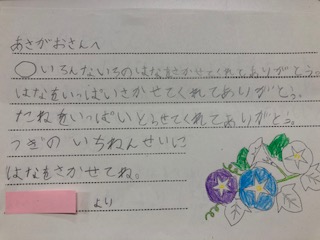 あさがおさんへ
いろんないろのはなをさかせてくれてありがとう。
はなをいっぱいさかせてくれてありがとう。
たねをいっぱいとらせてくれてありがとう。
つぎの いちねんせいに
はなをさかせてね。
より